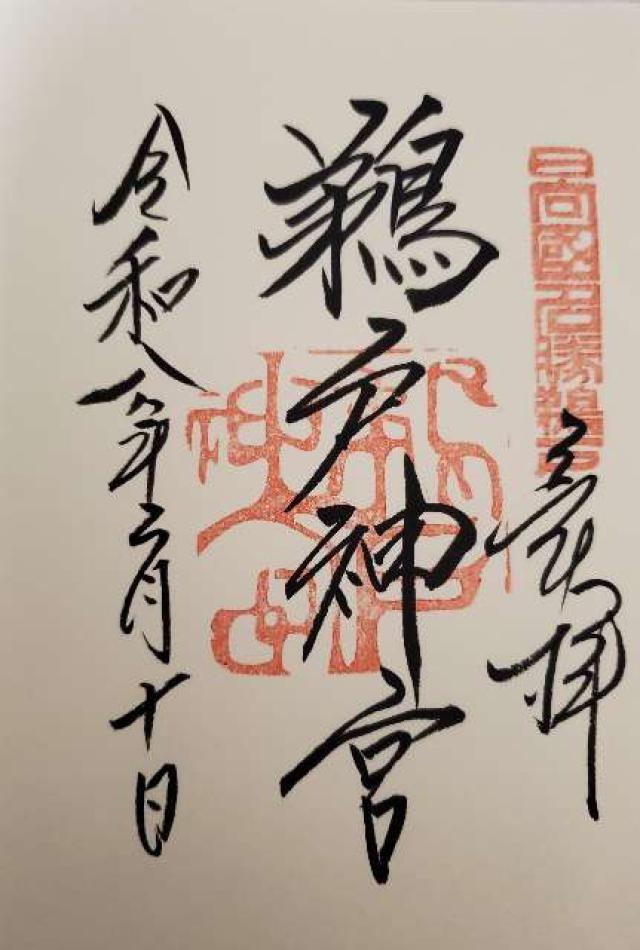 日向國名勝鵜戸
奉拝
鵜戸神宮
令和八年二月十日